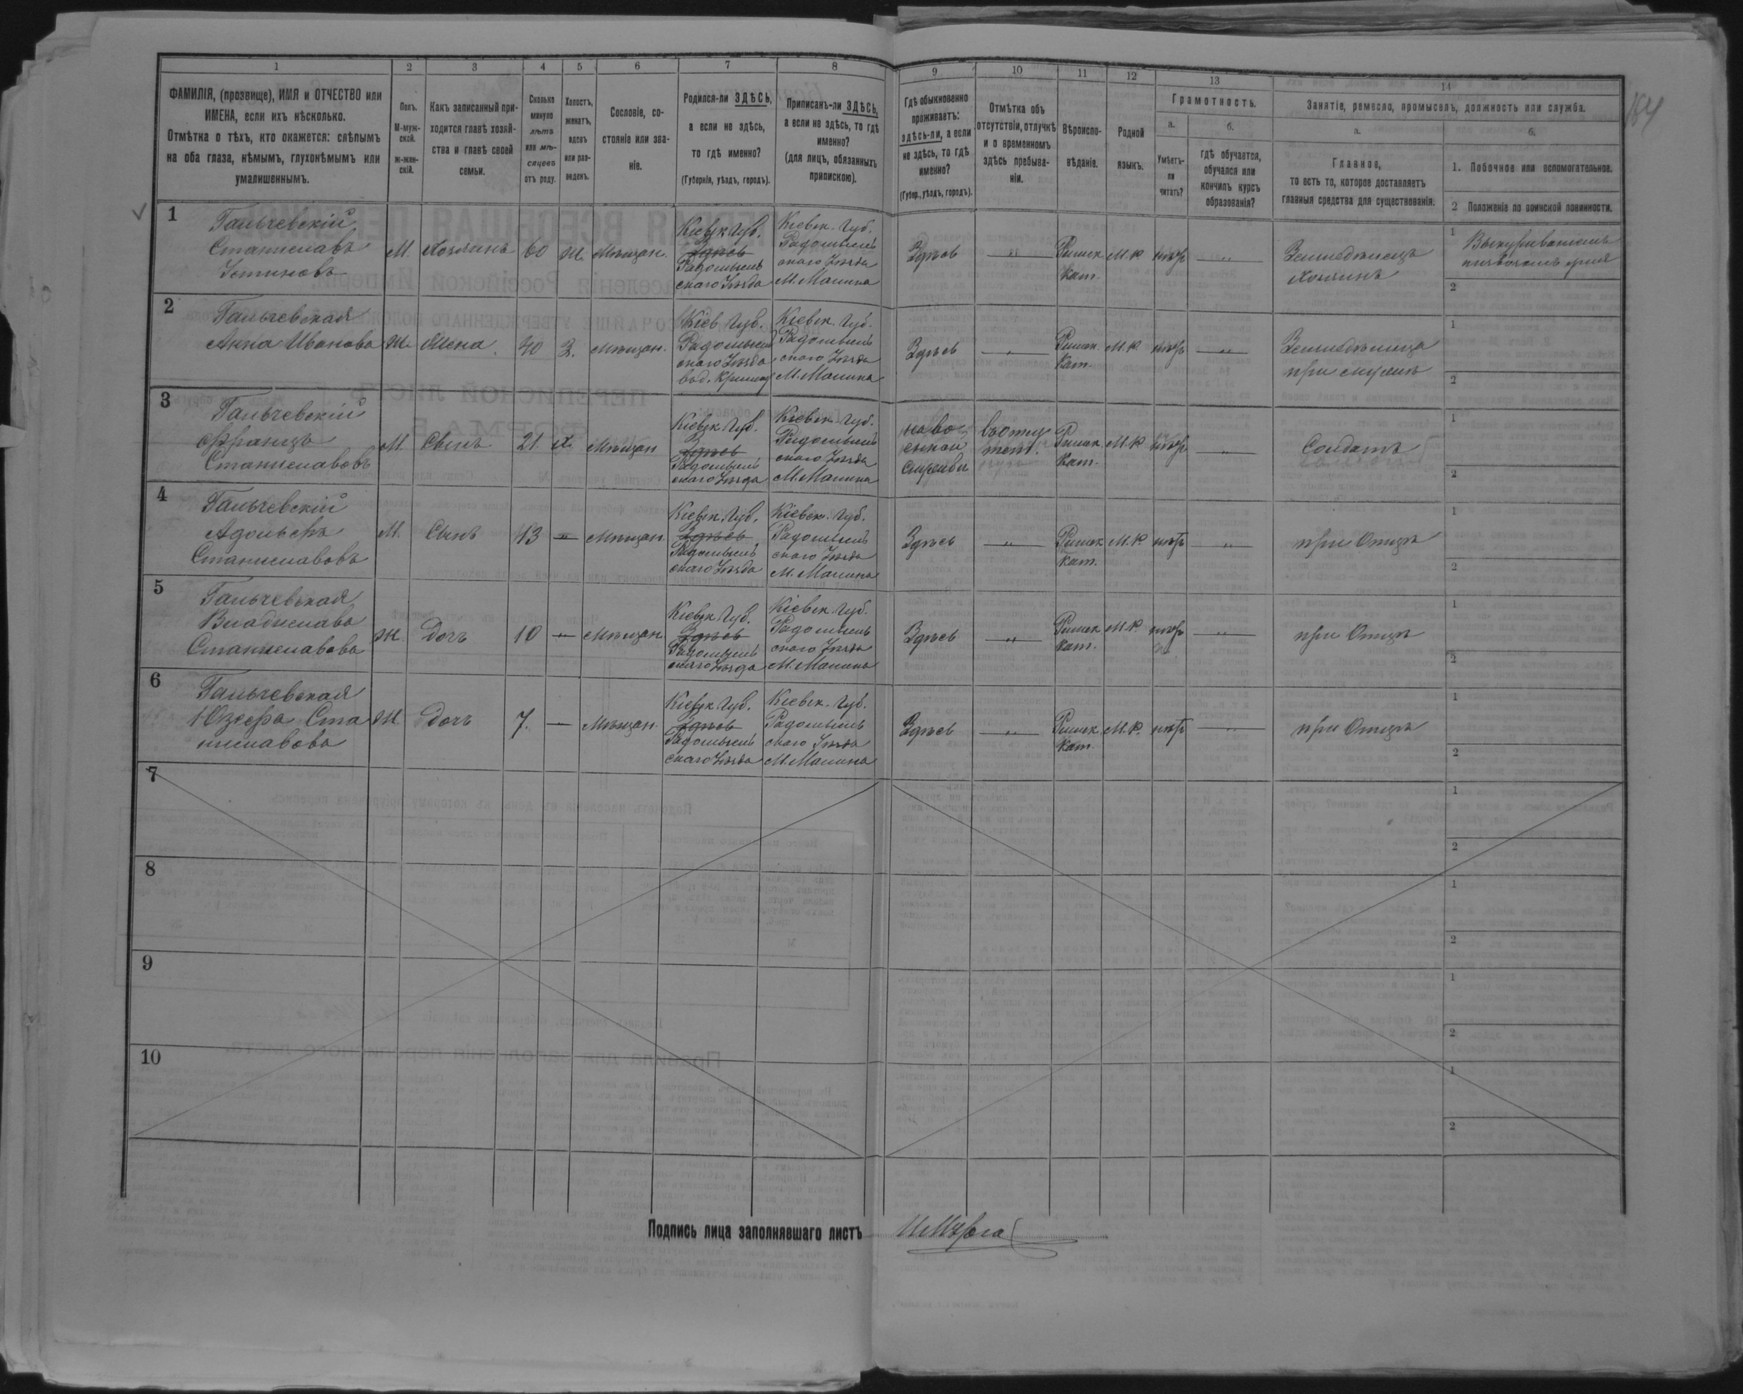 1 2 3 4 5 6 7 8 9 10 11 12 13 14
ФАМИЛІЯ, (прозвище), ИМЯ и ОТЧЕСТВО или
ИМЕНА, если ихъ нѣсколько.
Отмѣтка о тѣхъ, кто окажется: слѣпымъ
на оба глаза, нѣмымъ, глухонѣмымъ или
умалишеннымъ.
Полъ.
М-муж-
ской.
ж-жен-
скій.
Какъ записанный при-
ходится главѣ хозяй-
ства и главѣ своей
семьи.
Сколько
минуло
лѣтъ
или мѣ-
сяцевъ
отъ роду.
Холостъ,
женатъ,
вдовъ
или раз-
веденъ.
Сословіе, со-
стояніе или зва-
ніе.
Родился-ли ЗДѢСЬ,
а если не здѣсь,
то гдѣ именно?
(Губернія, уѣздъ, городъ).
Приписанъ-ли ЗДѢСЬ,
а если не здѣсь, то гдѣ
именно?
(для лицъ, обязанныхъ
припискою).
Гдѣ обыкновенно
проживаетъ:
здѣсь-ли, а если
не здѣсь, то гдѣ
именно?
(Губер., уѣздъ, городъ).
Отмѣтка объ
отсутствіи, отлучкѣ
и о временномъ
здѣсь пребыва-
ніи.
Вѣроиспо-
вѣданіе.
Родной
языкъ.
Грамотность.
а.
Умѣетъ-
ли
читать?
б.
гдѣ обучается,
обучался или
кончилъ курсъ
образованія?
Занятіе, ремесло, промыселъ, должность или служба.
а.
Главное,
то есть то, которое доставляетъ
главныя средства для существованія.
б.
1. Побочное или вспомогательное.
2 Положеніе по воинской повинности.
1
Гальчевскій
Станиславъ
Устиновъ
М. Хозяинъ 60 ж. Мѣщан.
Кіевск. Губ.
Здѣсь
Радомысль
скаго Уѣзда
Кіевск. Губ.
Радомысль
скаго Уѣзда
М. Малина
Здѣсь „ Римск.
Кат.
нѣтъ „
Земледѣлецъ
хозяинъ
1
2
2
Гальчевская
Анна Иванова
Ж. Жена. 40 З. Мѣщан.
Кіев. Губ.
Радомысль
скаго Уѣзда
Кіевск. Губ.
Радомысль
скаго Уѣзда
М. Малина
Здѣсь „ Римск.
Кат.
нѣтъ „
Земледѣлица
при мужѣ
1
2
3
Гальчевскій
Францъ
Станиславовъ
М. Сынъ 21 х. Мѣщан
Кіевск. Губ.
Здѣсь
Радомысль
скаго Уѣзда
Кіевск. Губ.
Радомысль
скаго Уѣзда
М. Малина
на во-
енной
службѣ
Римск.
Кат.
„
Солдатъ
1
2
4
Гальчевскій
Адольфъ
Станиславовъ
М. Сынъ 13 „ Мѣщан
Кіевск. Губ.
Здѣсь
Радомысль
скаго Уѣзда
Кіевск. Губ.
Радомысль
скаго Уѣзда
М. Малина
Здѣсь „ Римск.
Кат.
нѣтъ „ при Отцѣ
1
2
5
Гальчевская
Владислава
Станиславова
Ж. Дочь 10 — Мѣщан
Кіевск. Губ.
Здѣсь
Радомысль
скаго Уѣзда
Кіевск. Губ.
Радомысль
скаго Уѣзда
М. Малина
Здѣсь „ Римск.
Кат.
нѣтъ „ при Отцѣ
1
2
6
Гальчевская
Юзефа Ста
ниславова
Ж. Дочь 7. — Мѣщан
Кіевск. Губ.
Здѣсь
Радомысль
скаго Уѣзда
Кіевск. Губ.
Радомысль
скаго Уѣзда
М. Малина
Здѣсь „ Римск.
Кат.
нѣтъ „ при Отцѣ
1
2
7
1
2
8
1
2
9
1
2
10
1
2
Подпись лица заполнявшаго листъ